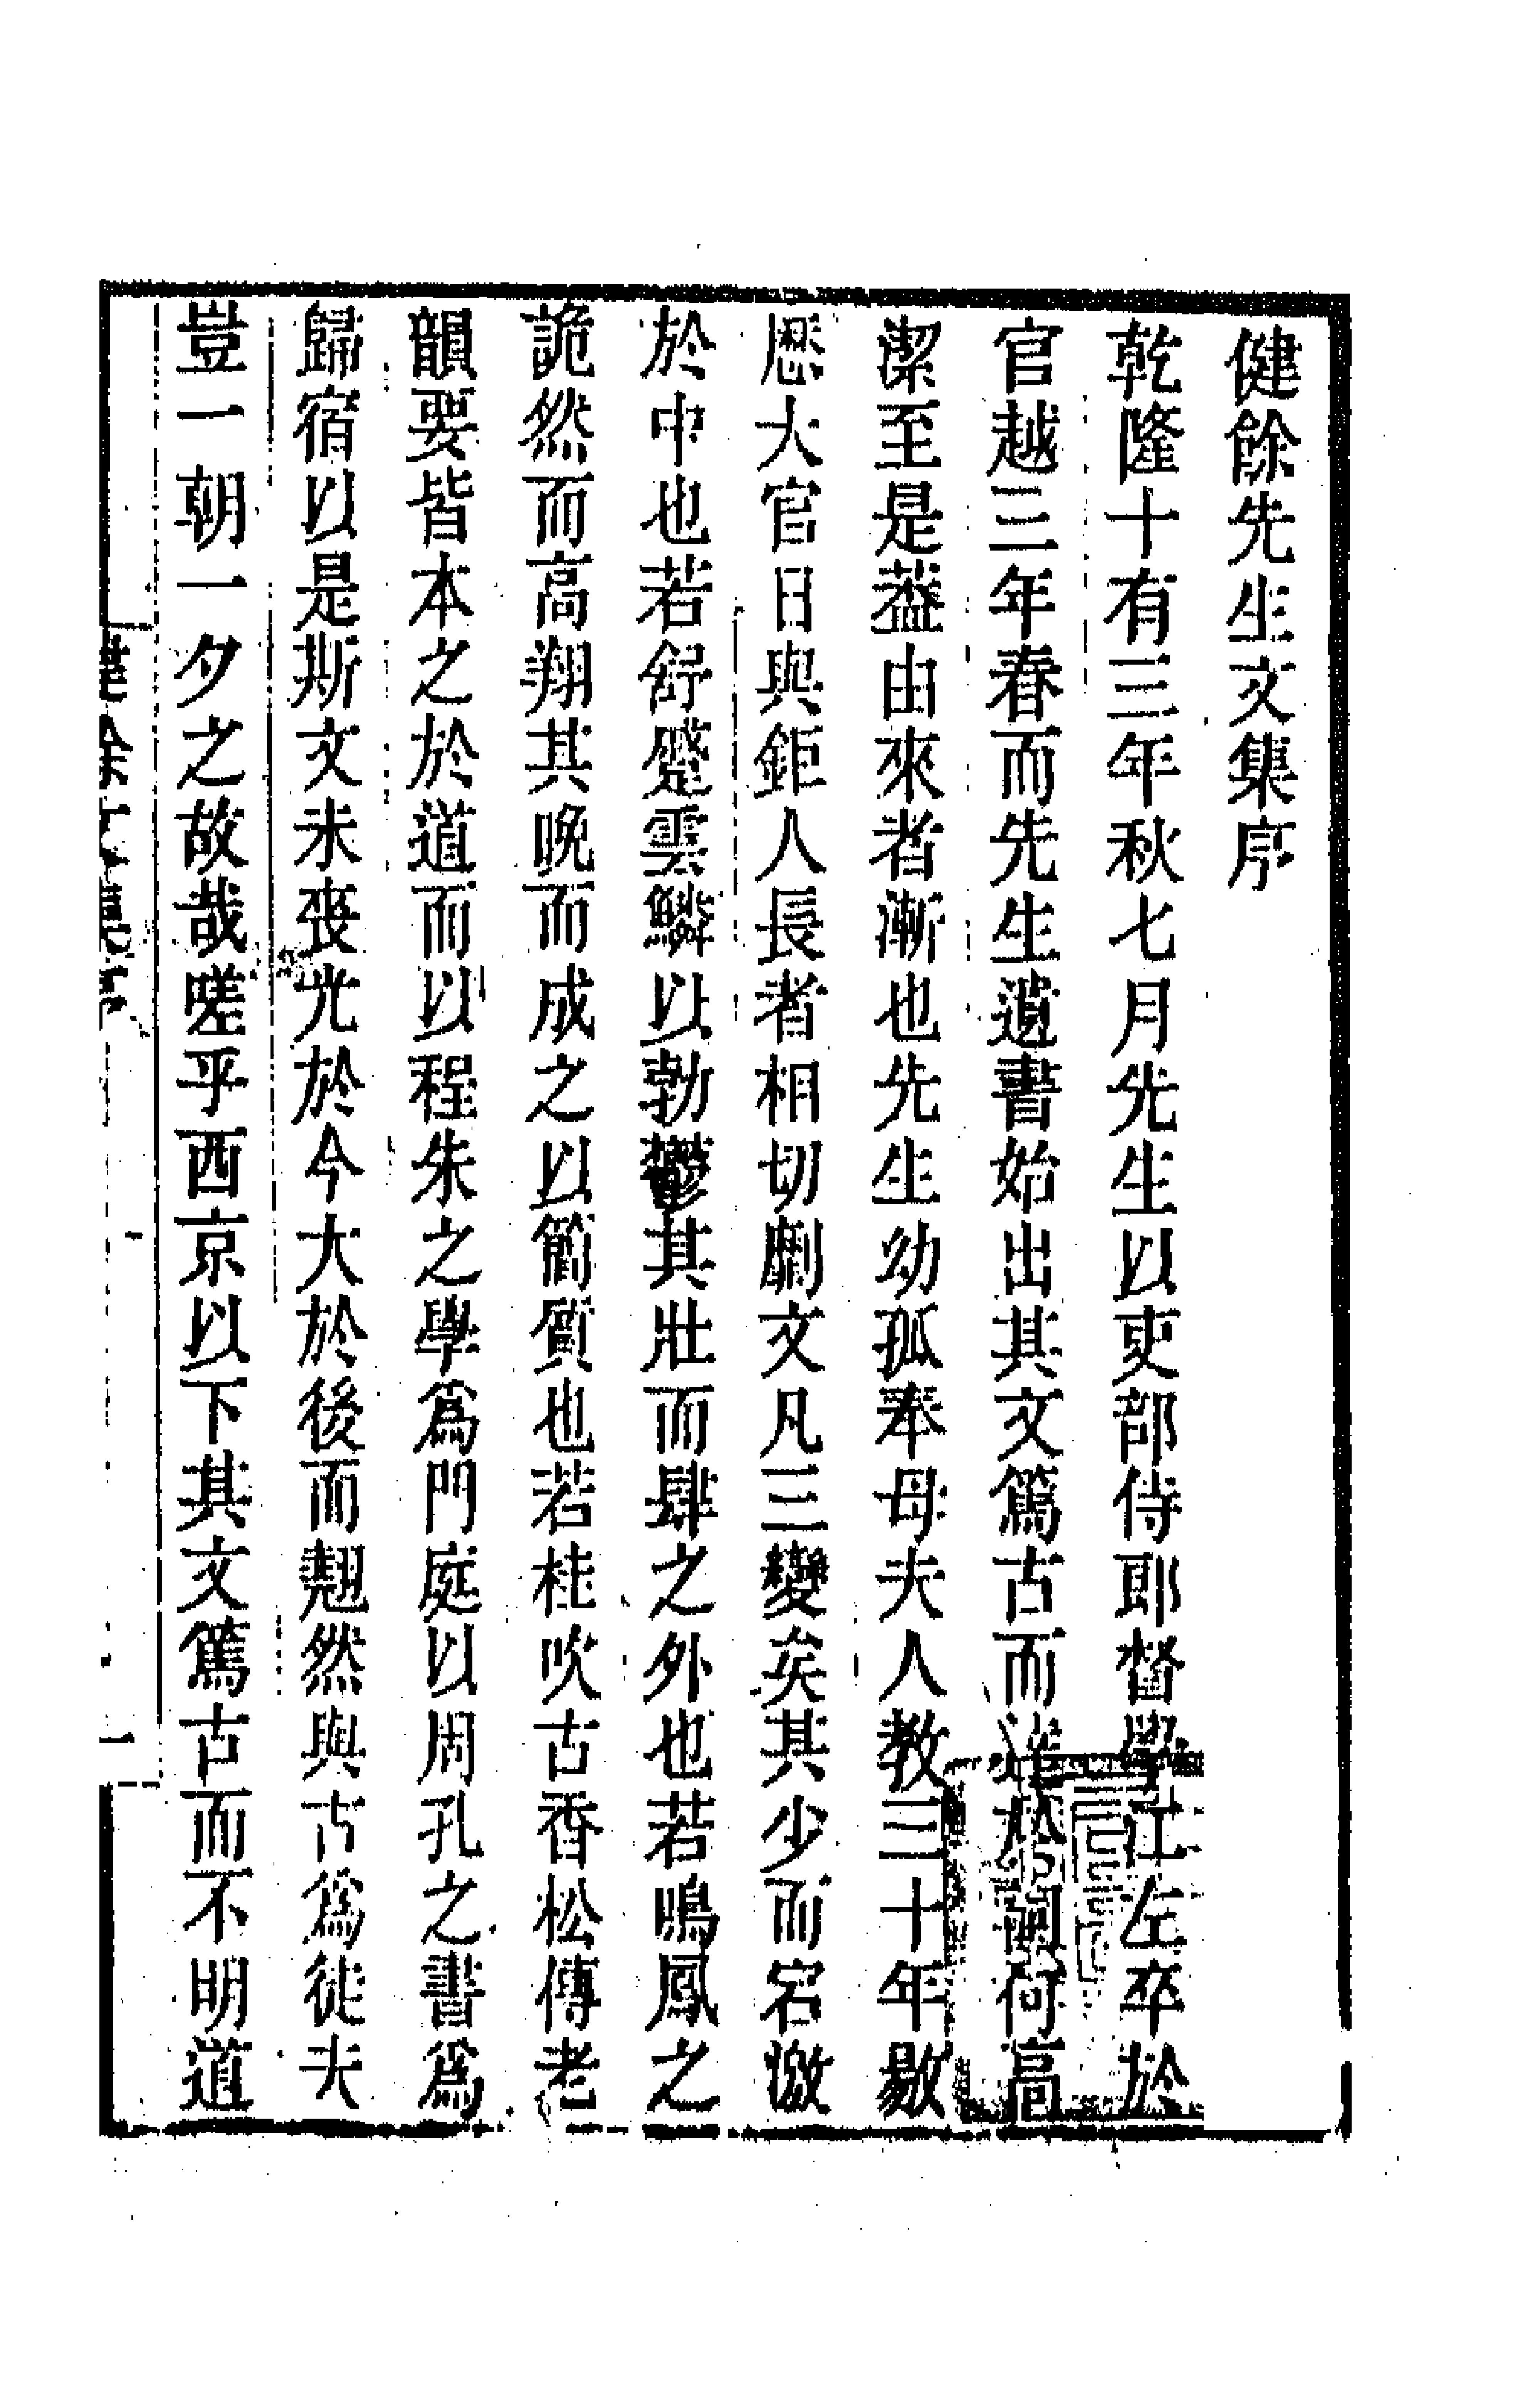 健餘先生文集序
乾隆十有三年秋七月先生以吏部侍郎督學江左卒於
官越三年春而先生遺書始出其文篤古而進於何高
潔至是葢由來者漸也先生幼孤奉母夫人教三十年敭
歷大官日與鉅人長者相切劘文凡三變矣其少而宕激
於中也若舒蹙雲鱗以勃鬱其壯而肆之外也若鳴鳳之
詭然而高翔其晚而成之以簡質也若桂吹古香松傳老
韻要皆本之於道而以程朱之學爲門庭以周孔之書爲
歸宿以是斯文未喪光於今大於後而翹然與古爲徒夫
豈一朝一夕之故哉嗟乎西京以下其文篤古而不明道
健餘文集序
一